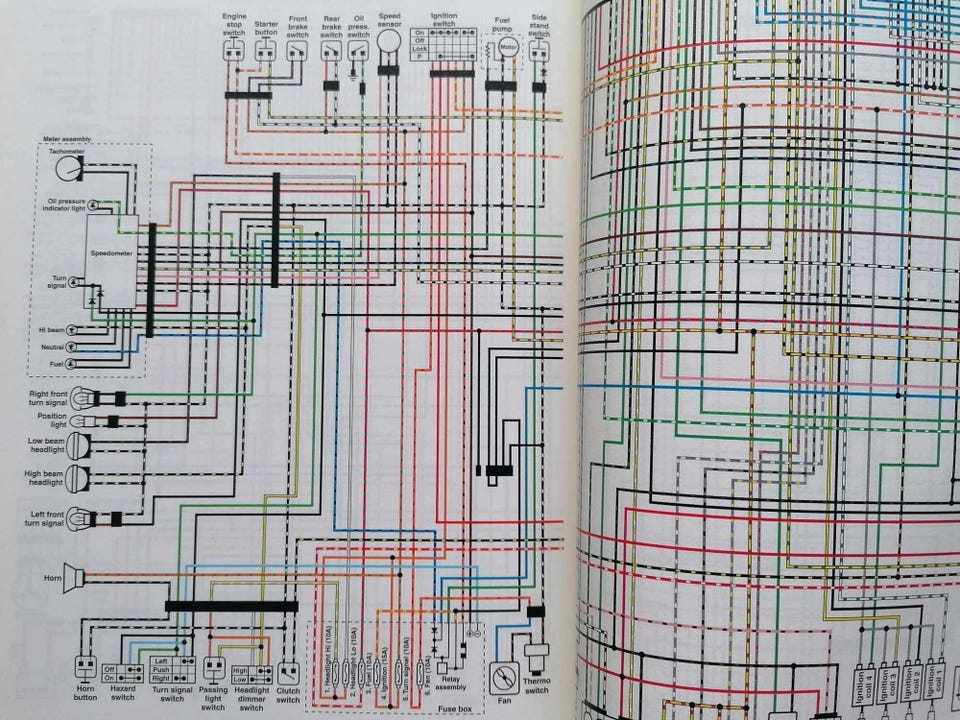 Engine
stop
switch
Starter
button
Front
brake
switch
Rear
brake
switch
Oil
press.
switch
Speed
sensor
Ignition
switch
On
Off
Lock
P
Fuel
pump
Motor
Side
stand
switch
Meter assembly
Tachometer
Oil pressure
indicator light
Speedometer
Turn
signal
Hi beam
Neutral
Fuel
Right front
turn signal
Position
light
Low beam
headlight
High beam
headlight
Left front
turn signal
Horn
Horn
button
Off
On
Hazard
switch
Left
Push
Right
Turn signal
switch
Passing
light
switch
High
Low
Headlight
dimmer
switch
Clutch
switch
1. Headlight Hi (10A)
2. Headlight Lo (10A)
3. Fuel (10A)
4. Ignition (15A)
5. Turn signal (10A)
6. Fan (10A)
Relay
assembly
Fuse box
Fan
Thermo
switch
Ignition
coil 4
Ignition
coil 3
Ignition
coil 2
Ignition
coil 1